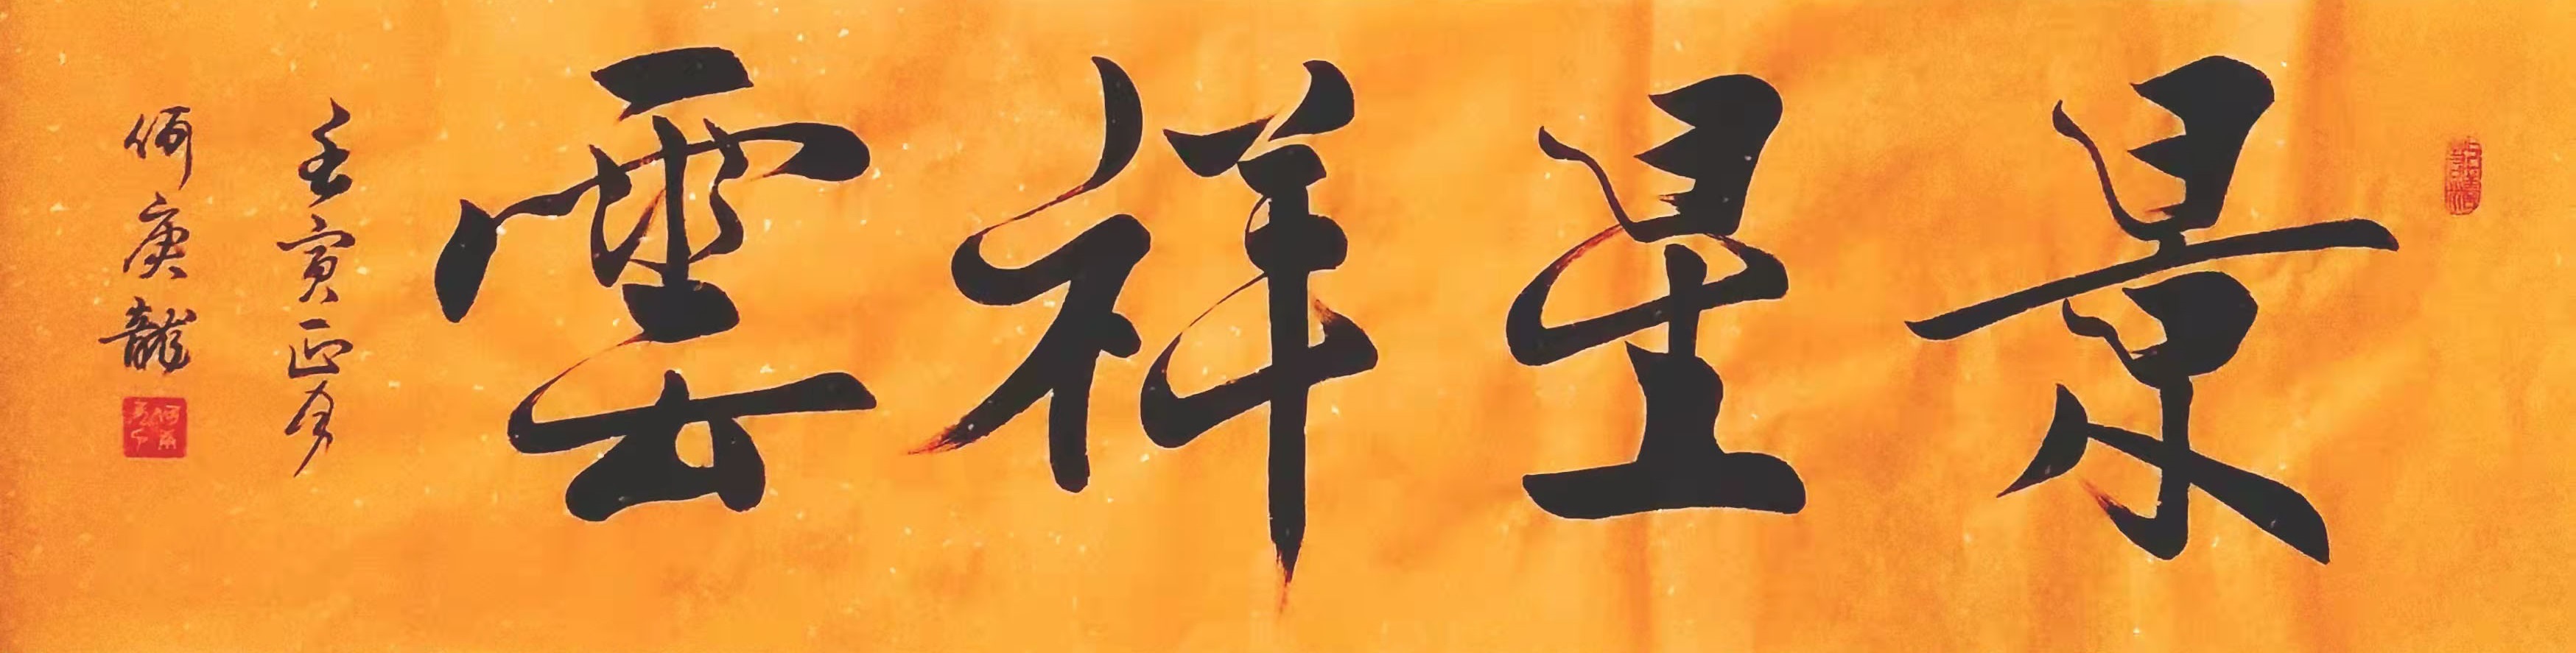 景星祥雲
壬寅正月
何庚龍